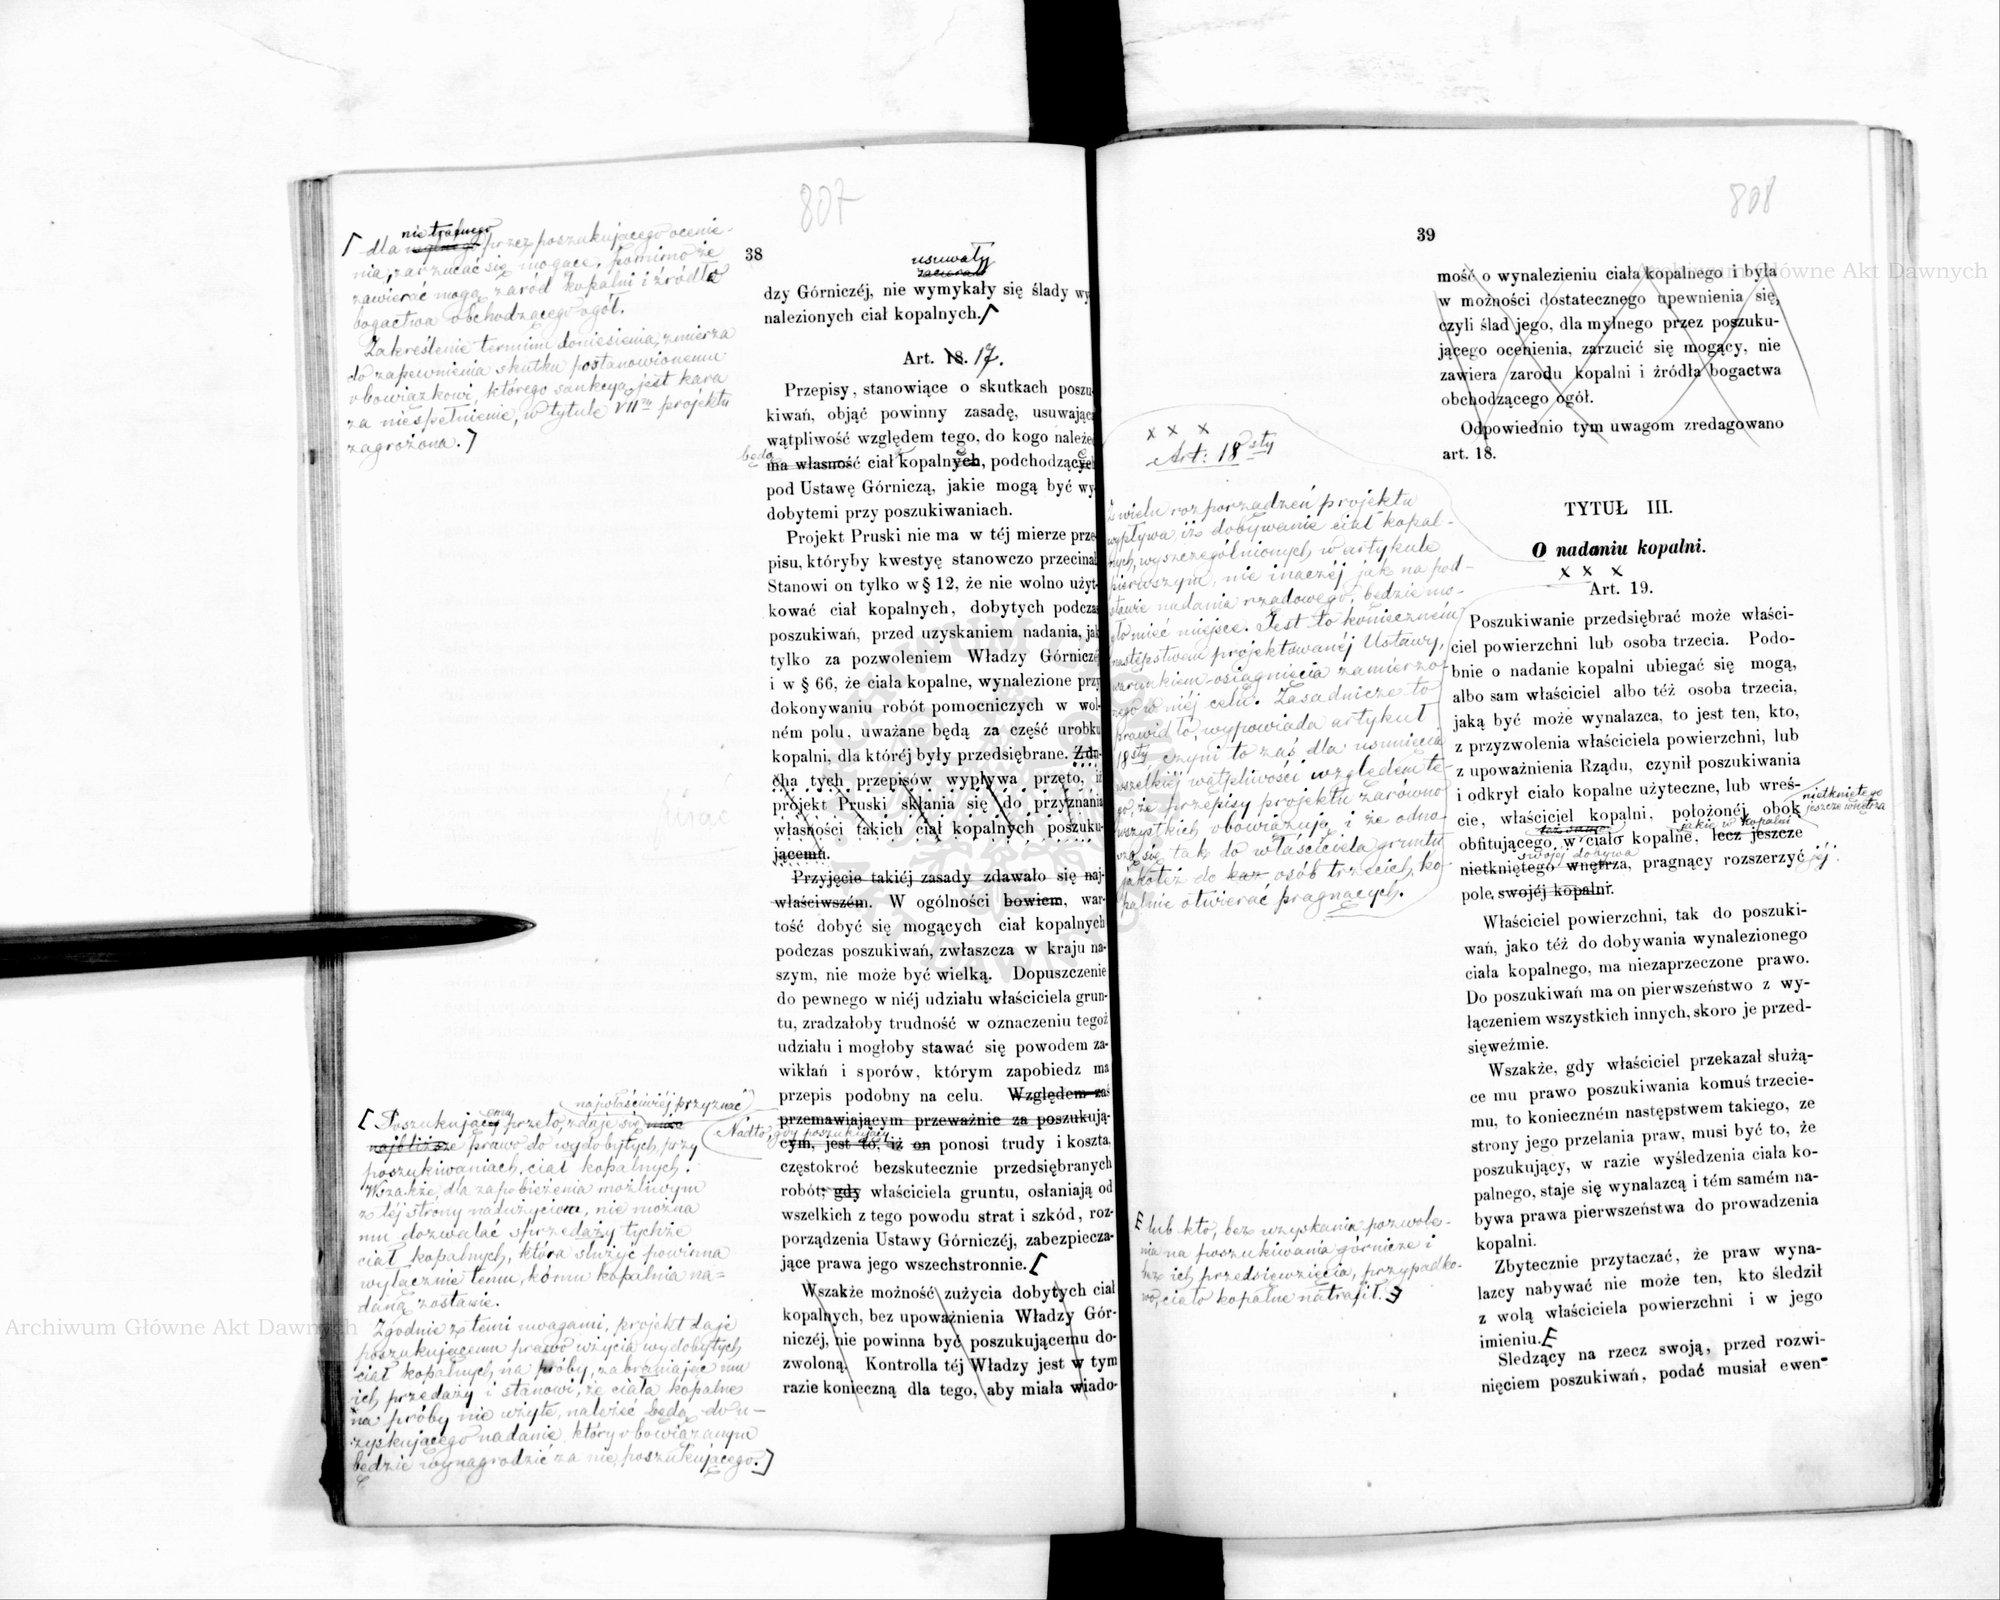 807
⌈ dla nietrafnego przez poszukującego ocenie-
nia, zarzucać się mogące, pomimo że
zawierać mogą zaród kopalni i źródło
bogactwa obchodzącego ogół.
Zakreślenie terminu doniesienia, zmierza
do zapewnienia skutku postanowionemu
obowiązkowi, którego sankcyą jest kara
za niespełnienie, w tytule VIIm projektu
zagrożona.⌉
38
usuwały
zacierały
dzy Górniczéj, nie wymykały się ślady wy
nalezionych ciał kopalnych.⌈
Art. 18. 17.
Przepisy, stanowiące o skutkach poszu
kiwań, objąć powinny zasadę, usuwając
wątpliwość względem tego, do kogo należe
będą
ma własność ciał kopalnych, podchodzących
pod Ustawę Górniczą, jakie mogą być wy-
dobytemi przy poszukiwaniach.
Projekt Pruski nie ma w téj mierze prze
pisu, któryby kwestyę stanowczo przecinał
Stanowi on tylko w § 12, że nie wolno użyt-
kować ciał kopalnych, dobytych podczas
poszukiwań, przed uzyskaniem nadania, jak
tylko za pozwoleniem Władzy Górniczé
i w § 66, że ciała kopalne, wynalezione przy
dokonywaniu robót pomocniczych w wol-
ném polu, uważane będą za część urobku
kopalni, dla któréj były przedsiębrane. Zdu-
cha tych przepisów wypływa przęto, iż
projekt Pruski skłania się do przyznania
własności takich ciał kopalnych poszuku-
jącemu.
Przyjęcie takiéj zasady zdawało się naj-
właściwszém. W ogólności bowiem, war-
tość dobyć się mogących ciał kopalnych
podczas poszukiwań, zwłaszcza w kraju na-
szym, nie może być wielką. Dopuszczenie
do pewnego w niéj udziału właściciela grun-
tu, zradzałoby trudność w oznaczeniu tegoż
udziału i mogłoby stawać się powodem za-
wikłań i sporów, którym zapobiedz ma
przepis podobny na celu. Względem zaś
przemawiającym przeważnie za poszukują-
Nadto, gdy poszukujący
cym, jest to, iż on ponosi trudy i koszta,
częstokroć bezskutecznie przedsiębranych
robót; gdy właściciela gruntu, osłaniają od
wszelkich z tego powodu strat i szkód, roz-
porządzenia Ustawy Górniczéj, zabezpiecza-
jące prawa jego wszechstronnie.⌈
Wszakże możność zużycia dobytych ciał
kopalnych, bez upoważnienia Władzy Gór-
niczéj, nie powinna być poszukującemu do-
zwoloną. Kontrolla téj Władzy jest w tym
razie konieczną dla tego, aby miała wiado-
najwłaściwiéj przyznać
⌈ Poszukującemu przeto, zdaje się
najbliższe prawo do wydobytych, przy
poszukiwaniach, ciał kopalnych.
Wszakże, dla zapobieżenia możliwym
z téj strony nadużyciom, nie można
mu dozwalać sprzedaży tychże
ciał kopalnych, która służyć powinna
wyłącznie temu, komu kopalnia na-
daną zostanie.
Zgodnie z temi uwagami, projekt daje
poszukującemu prawo użycia wydobytych
ciał kopalnych na próby, zabraniając mu
ich przedaży i stanowi, że ciała kopalne
na próby nie użyte, należeć będą do u-
zyskującego nadanie, który obowiązanym
będzie wynagrodzić za nie poszukującego.⌉
808
39
mość o wynalezieniu ciała kopalnego i była
w możności dostatecznego upewnienia się,
czyli ślad jego, dla mylnego przez poszuku-
jącego ocenienia, zarzucić się mogący, nie
zawiera zarodu kopalni i źródła bogactwa
obchodzącego ogół.
Odpowiednio tym uwagom zredagowano
art. 18.
x x x
Art: 18sty
Z wielu rozporządzeń projektu
wypływa, iż dobywanie ciał kopal-
nych, wyszczególnionych w artykule
pierwszym, nie inaczéj jak na pod-
stawie nadania rządowego, będzie mo-
gło mieć miejsce. Jest to koniecznem
następstwem projektowanéj Ustawy,
warunkiem osiągnięcia zamierzo-
nego w niéj celu. Zasadnicze to
prawidło, wypowiada artykuł
18sty, czyni to zaś dla usunięcia
wszelkiéj wątpliwości względem te-
go, że przepisy projektu zarówno
wszystkich obowiązują i że odno-
szą się tak do właściciela gruntu
jakotéż do osób trzecich, ko-
palnie otwierać pragnących.
TYTUŁ III.
O nadaniu kopalni.
x x x
Art. 19.
Poszukiwanie przedsiębrać może właści-
ciel powierzchni lub osoba trzecia. Podo-
bnie o nadanie kopalni ubiegać się mogą,
albo sam właściciel albo téż osoba trzecia,
jaką być może wynalazca, to jest ten, kto,
z przyzwolenia właściciela powierzchni, lub
z upoważnienia Rządu, czynił poszukiwania
i odkrył ciało kopalne użyteczne, lub wreś-
nietkniętego
jeszcze wnętrza
cie, właściciel kopalni, położonéj obok
toż samo jakie w kopalni
obfitującego w ciało kopalne, lecz jeszcze
swojéj dobywa
nietkniętego wnętrza, pragnący rozszerzyć jéj
pole, swojéj kopalni.
Właściciel powierzchni, tak do poszuki-
wań, jako téż do dobywania wynalezionego
ciała kopalnego, ma niezaprzeczone prawo.
Do poszukiwań ma on pierwszeństwo z wy-
łączeniem wszystkich innych, skoro je przed-
sięweźmie.
Wszakże, gdy właściciel przekazał służą-
ce mu prawo poszukiwania komuś trzecie-
mu, to konieczném następstwem takiego, ze
strony jego przelania praw, musi być to, że
poszukujący, w razie wyśledzenia ciała ko-
palnego, staje się wynalazcą i tém samém na-
bywa prawa pierwszeństwa do prowadzenia
kopalni.
Zbytecznie przytaczać, że praw wyna-
lazcy nabywać nie może ten, kto śledził
z wolą właściciela powierzchni i w jego
imieniu.E
Śledzący na rzecz swoją, przed rozwi-
nięciem poszukiwań, podać musiał ewen-
E lub kto, bez uzyskania pozwole-
nia na poszukiwania górnicze i
bez ich przedsięwzięcia, przypadko-
wo, ciało kopalne natrafił.
Archiwum Główne Akt Dawnych
Archiwum Główne Akt Dawnych